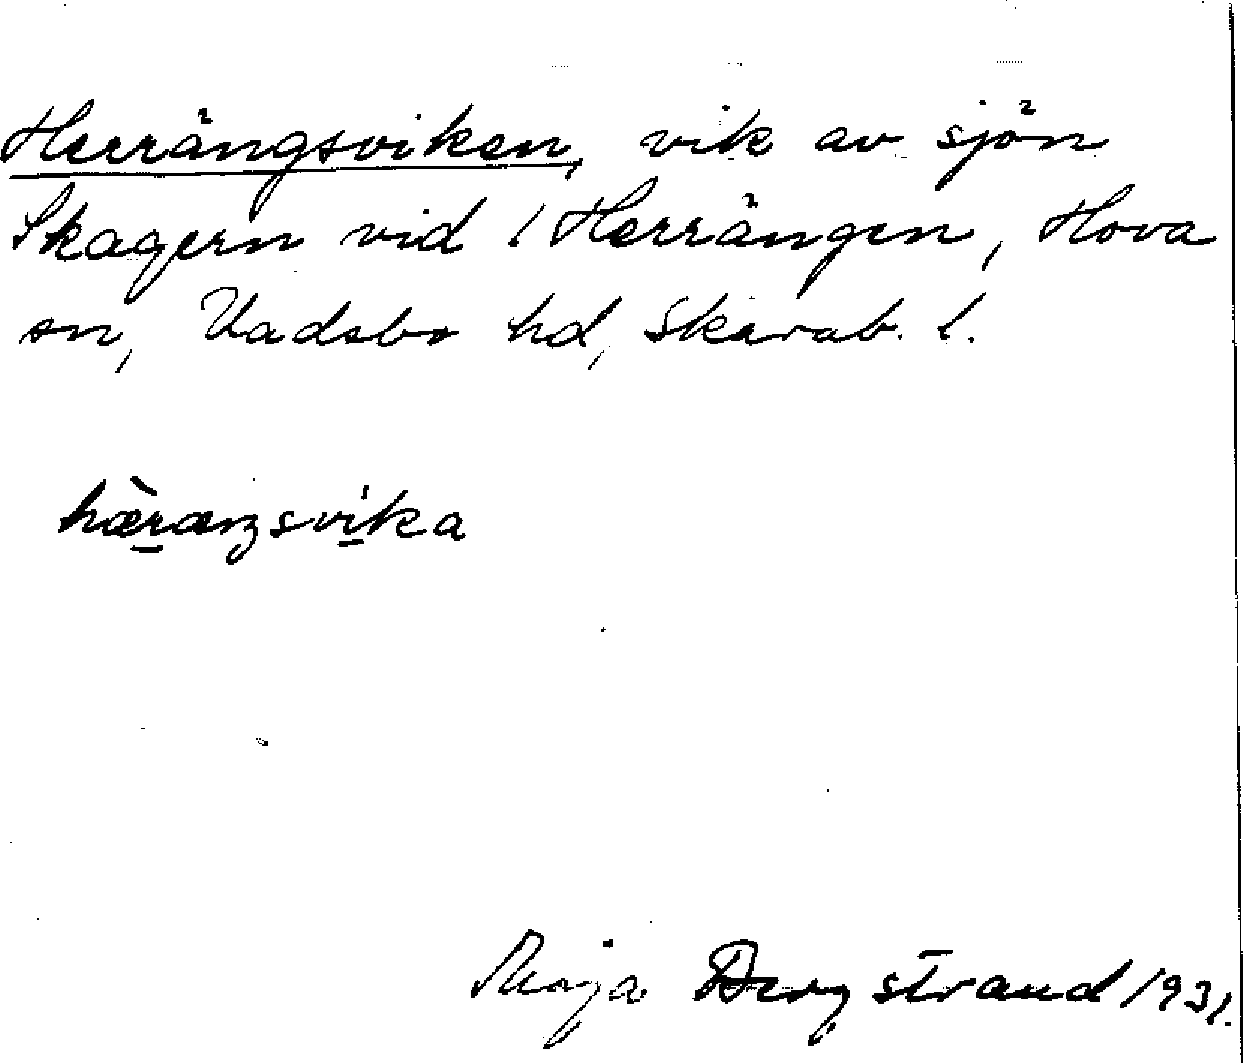 Herrängsviken, vik av sjön
Skagern vid l Herrängen, Hova
sn, Vadsbo hd, Skarab. l.
hæ̀ræŋsvika
Maja Bergstrand 1931.